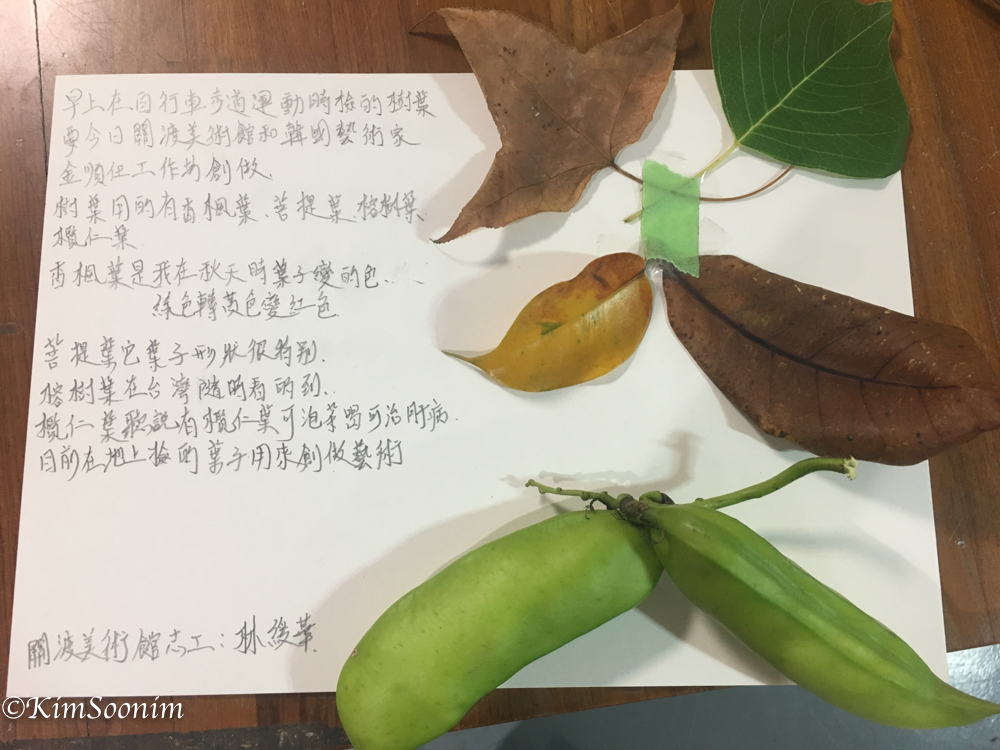 早上在自行車步道運動時撿的樹葉
要今日關渡美術館和韓國藝術家
金順任工作的創做.
樹葉用的有香楓葉、菩提葉、榕樹葉
欖仁葉
香楓葉是我在秋天時葉子變的色......
綠色轉黃色變紅色
菩提葉它葉子形狀很特別.
榕樹葉在台灣隨時看的到..
欖仁葉聽說有欖仁葉可泡茶喝可治肝病.
目前在地上撿的葉子用來創做藝術
關渡美術館志工:孫後華
©KimSoonim